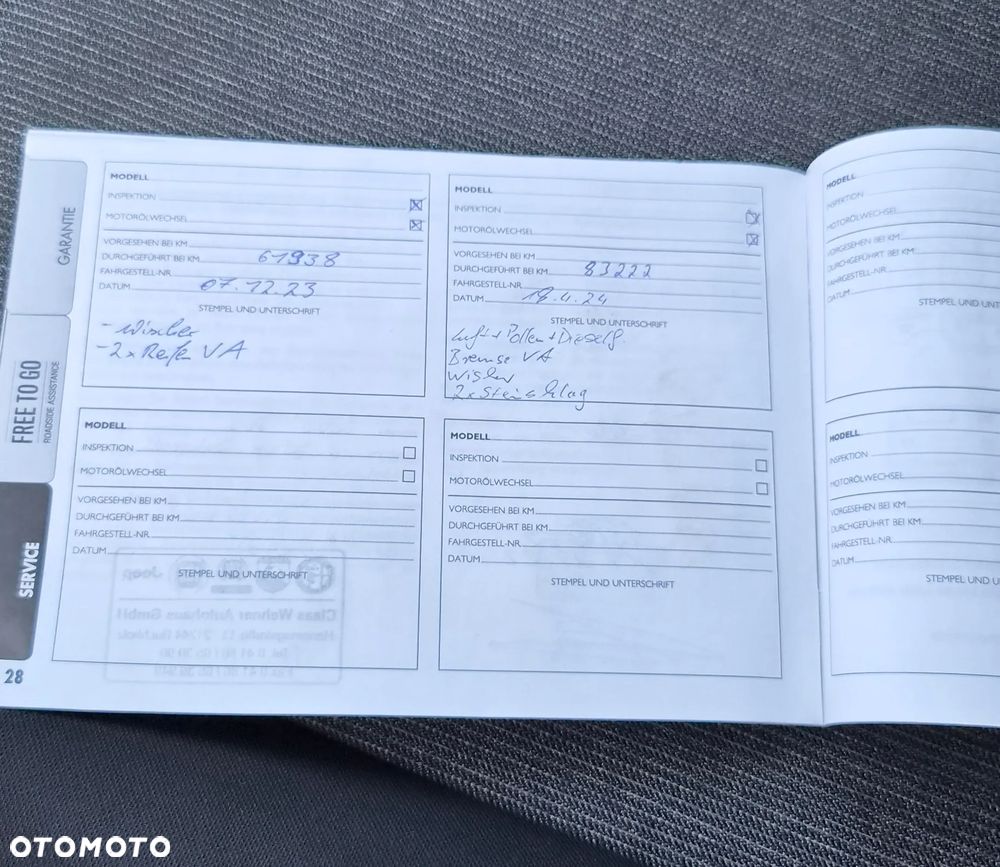 GARANTIE
FREE TO GO
ROADSIDE ASSISTANCE
SERVICE
28
MODELL
INSPEKTION
MOTORÖLWECHSEL
VORGESEHEN BEI KM
DURCHGEFÜHRT BEI KM 61938
FAHRGESTELL-NR.
DATUM 07.12.23
STEMPEL UND UNTERSCHRIFT
- Wischer
- 2x Reifen VA
MODELL
INSPEKTION
MOTORÖLWECHSEL
VORGESEHEN BEI KM
DURCHGEFÜHRT BEI KM 83222
FAHRGESTELL-NR.
DATUM 18.4.24
STEMPEL UND UNTERSCHRIFT
Luft + Pollen + Dieself.
Bremse VA
Wisher
2x Steinschlag
MODELL
INSPEKTION
MOTORÖLWECHSEL
VORGESEHEN BEI KM
DURCHGEFÜHRT BEI KM
FAHRGESTELL-NR.
DATUM
STEMPEL UND UNTERSCHRIFT
Jeep
Claas Wehner Autohaus GmbH
MODELL
INSPEKTION
MOTORÖLWECHSEL
VORGESEHEN BEI KM
DURCHGEFÜHRT BEI KM
FAHRGESTELL-NR.
DATUM
STEMPEL UND UNTERSCHRIFT
MODELL
INSPEKTION
MOTORÖLWECHSEL
VORGESEHEN BEI KM
DURCHGEFÜHRT BEI KM
FAHRGESTELL-NR.
DATUM
STEMPEL UND UNT
MODELL
INSPEKTION
MOTORÖLWECHSEL
VORGESEHEN BEI KM
DURCHGEFÜHRT BEI KM
FAHRGESTELL-NR.
DATUM
STEMPEL UND U
OTOMOTO